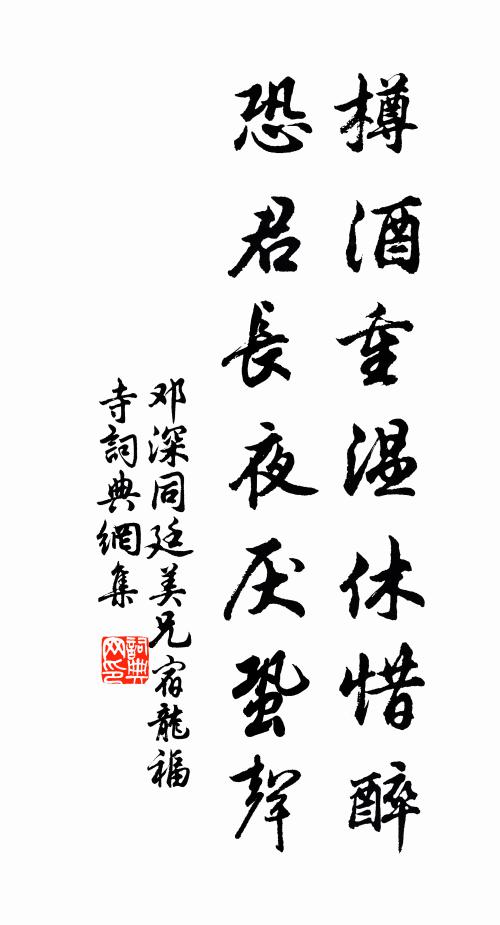 樽酒重温休惜醉
恐君長夜厌蛩聲
邓深同廷美兄宿龍福
寺詞典網集
詞典
网印